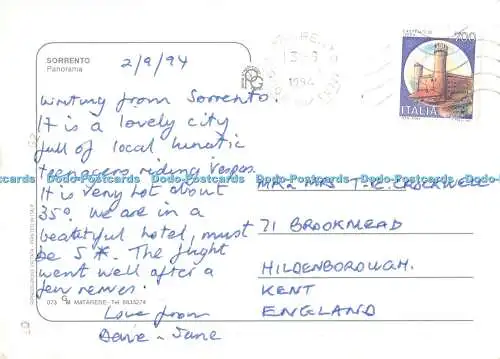 SORRENTO
Panorama
2/9/94
Writing from Sorrento.
It is a lovely city
full of local lunatic
teenagers riding Vespas.
It is very hot about
35°. We are in a
beautiful hotel, must
be 5*. The flight
went well after a
few nerves.
Love from
Dave - June
CASTELLO DI
700
ITALIA
1994
MR & MRS T.R. CROCKWELL
71 BROOKMEAD
HILDENBOROUGH.
KENT
ENGLAND
Dodo-Postcards Dodo-Postcards Dodo-Postcards Dodo-Postcards
073 M MATARESE - Tel 8633274